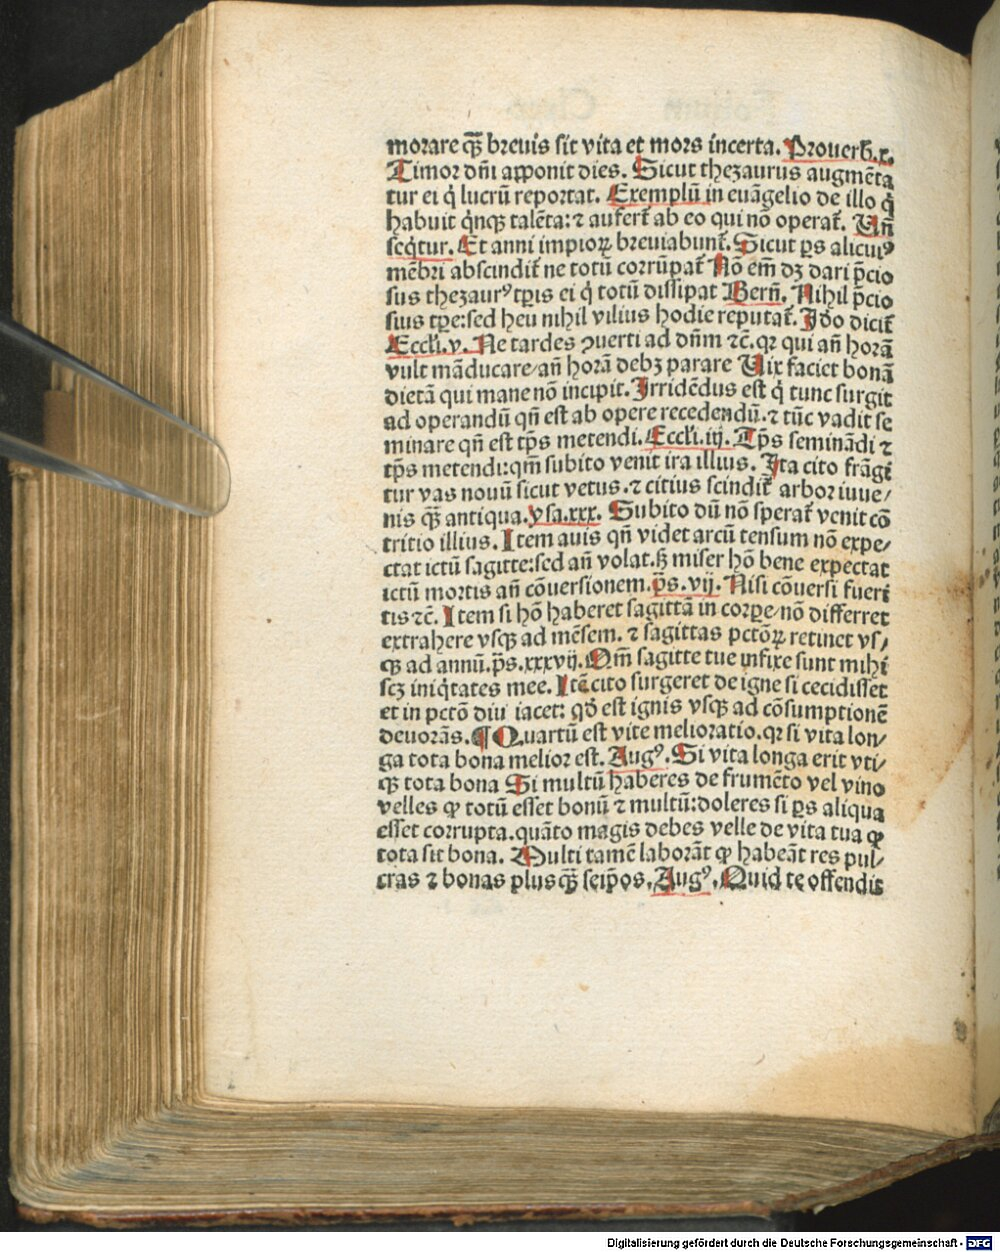 morare qȝ breuis sit vita et mors incerta. Prouerb̄.x.
Timor dn̄i apponit dies. Sicut thezaurus augmēta
tur ei q̇ lucrū reportat. Exemplū in euāgelio de illo q̇
habuit q̇nqȝ talēta: ⁊ aufert̄ ab eo qui nō operat̄. Un̄
seq̇tur. Et anni impioꝝ breuiabunt̄. Sicut ꝑs alicuiꝰ
mēbri abscindit̄ ne totū corrūpat̄ Nō em̄ dȝ dari p̄cio
sus thezaurꝰ tꝑis ei q̇ totū dissipat Bern̄. Nihil p̄cio
sius tꝑe: sed heu nihil vilius hodie reputat̄. Jdo dicit̄
Eccli.v. Ne tardes ꝯuerti ad dn̄m ⁊c̄. qꝛ qui an̄ horā
vult māducare/ an̄ horā debȝ parare Uix faciet bonā
dietā qui mane nō incipit. Jrridēdus est q̇ tunc surgit
ad operandū qn̄ est ab opere recedendū. ⁊ tūc vadit se
minare qn̄ est tp̄s metendi. Eccli.iij. Tp̄s seminādi ⁊
tp̄s metendi: qm̄ subito venit ira illius. Jta cito frāgi
tur vas nouū sicut vetus. ⁊ citius scindit̄ arbor iuue/
nis qȝ antiqua. ysa.xxx. Subito dū nō sperat̄ venit cō
tritio illius. Item auis qn̄ videt arcū tensum nō expe/
ctat ictū sagitte: sed an̄ volat. sȝ miser hō bene expectat
ictū mortis an̄ cōuersionem. p̄s.vij. Nisi cōuersi fueri
tis ⁊c̄. Item si hō haberet sagittā in corꝑe/ nō differret
extrahere vsqȝ ad mēsem. ⁊ sagittas pctōꝝ retinet vs/
qȝ ad annū. p̄s.xxxvij. Qm̄ sagitte tue infixe sunt mihi
scȝ iniq̇tates mee. Itē cito surgeret de igne si cecidisset
et in pctō diu iacet: qd̄ est ignis vsqȝ ad cōsumptionē
deuorās. ¶ Quartū est vite melioratio. qꝛ si vita lon/
ga tota bona melior est. Augꝰ. Si vita longa erit vti/
qȝ tota bona Si multū haberes de frumēto vel vino
velles ꝙ totū esset bonū ⁊ multū: doleres si ꝑs aliqua
esset corrupta. quāto magis debes velle de vita tua ꝙ
tota sit bona. Multi tamē laborāt ꝙ habeāt res pul/
cras ⁊ bonas plus qȝ seip̄os. Augꝰ. Quid te offendit
Digitalisierung gefördert durch die Deutsche Forschungsgemeinschaft - DFG